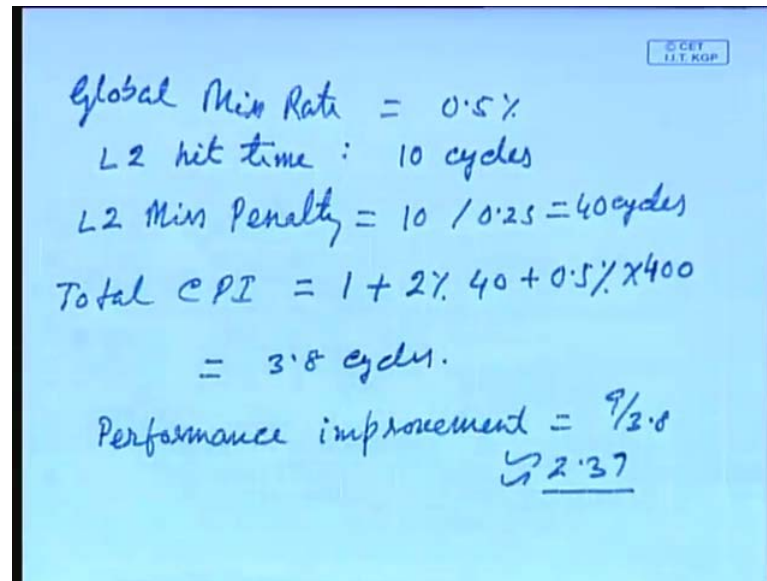 © CET
I.I.T. KGP
Global Miss Rate = 0.5%
L2 hit time : 10 cycles
L2 Miss Penalty = 10 / 0.25 = 40 cycles
Total CPI = 1 + 2% 40 + 0.5% x 400
= 3.8 cycles.
Performance improvement = 9/3.8
≈ 2.37